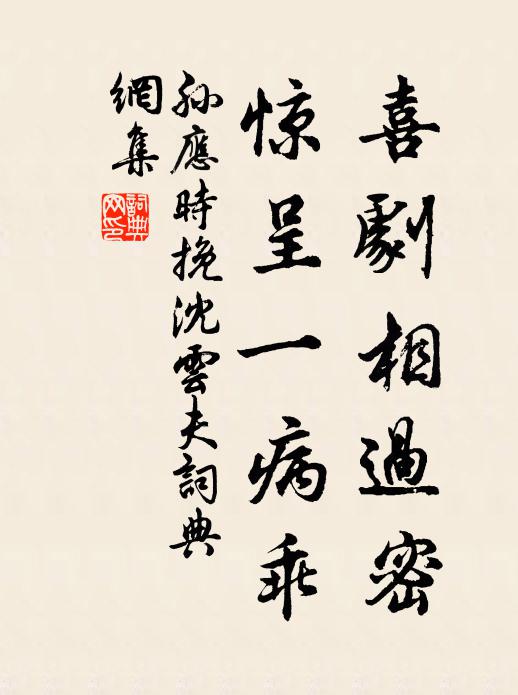 喜劇相過密
惊呈一病乖
孙應時挽沈雲夫詞典
網集
詞典
网印